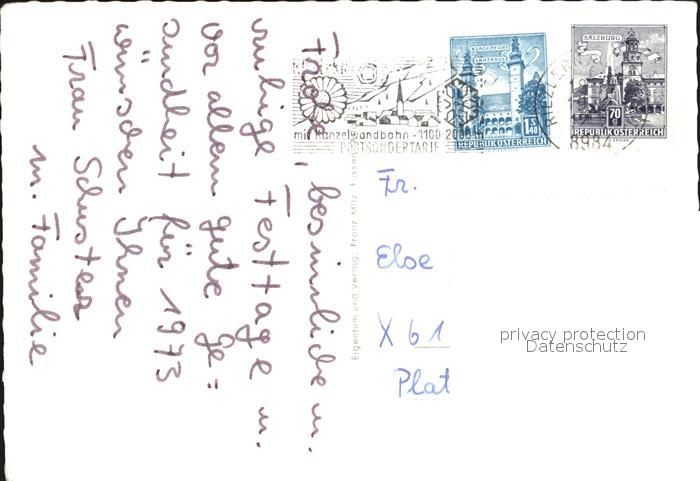 Frohe, besinliche u.
ruhige Festtage u.
vor allem gute Ge=
sundheit für 1973
wünschen Ihnen
Frau Schuster
m. Familie
KLAGENFURT
LANDHAUS
1.40
REPUBLIK ÖSTERREICH
SALZBURG
70
REPUBLIK ÖSTERREICH
mit Kanzelwandbahn - 1100-2000
POSTSONDERTARIF
8984
Eigentum und Verlag: Franz Milz, Füssen
Fr.
Else
X 61
Plat
privacy protection
Datenschutz